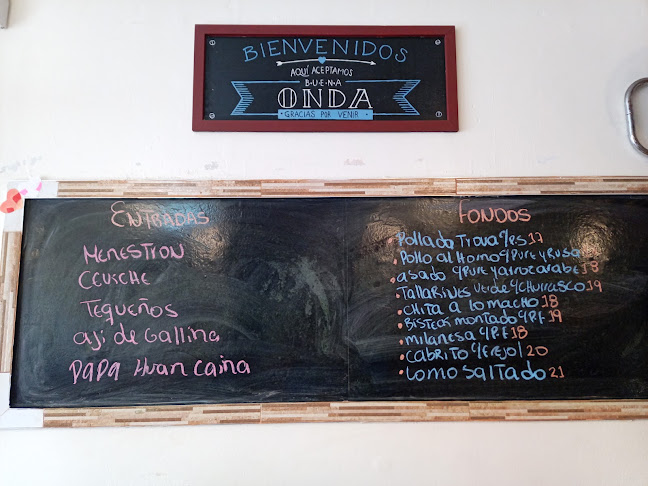 BIENVENIDOS
AQUÍ ACEPTAMOS
B·U·E·N·A
ONDA
GRACIAS POR VENIR
ENTRADAS
MENESTRON
CEVICHE
TEQUEÑOS
aji de Gallina
PAPA Huan Caina
FONDOS
• Pollada Trova c/PS 17
• Pollo al Horno c/Pure y Rusa
• asado c/Pure y arroz arabe 18
• TallaRines Verde c/CHURRASCO 19
• CHITA a lo macho 18
• BISTECK montado c/P.F 19
• milanesa c/P.F 18
• CABRITO c/FREJOL 20
• LOMO SalTado 21